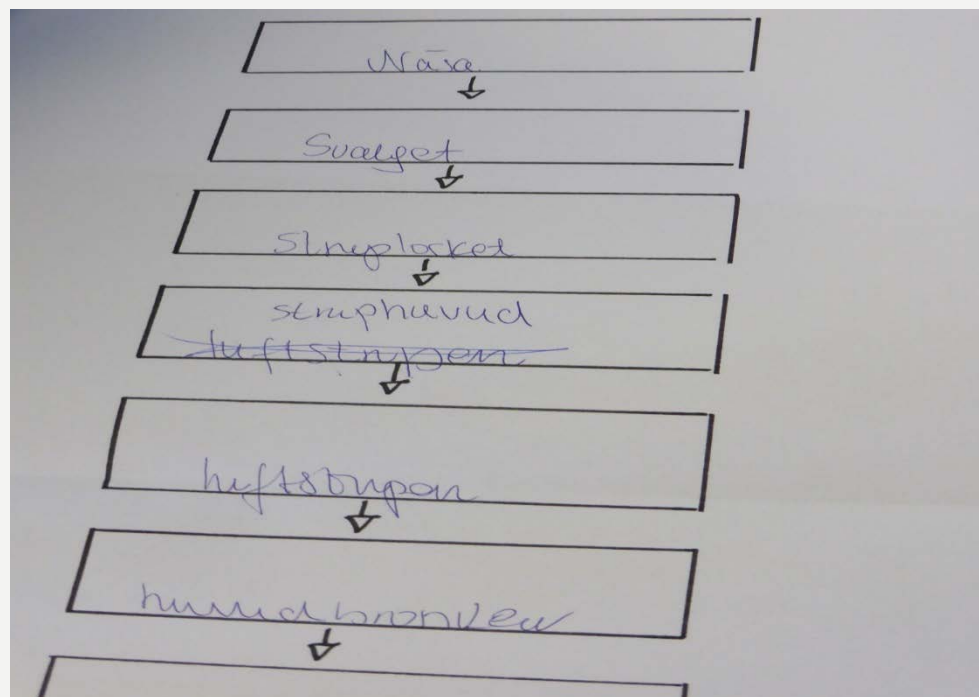 Näsa
Svalget
Struplocket
struphuvud
luftstrupen
luftstrupen
huvudbronker